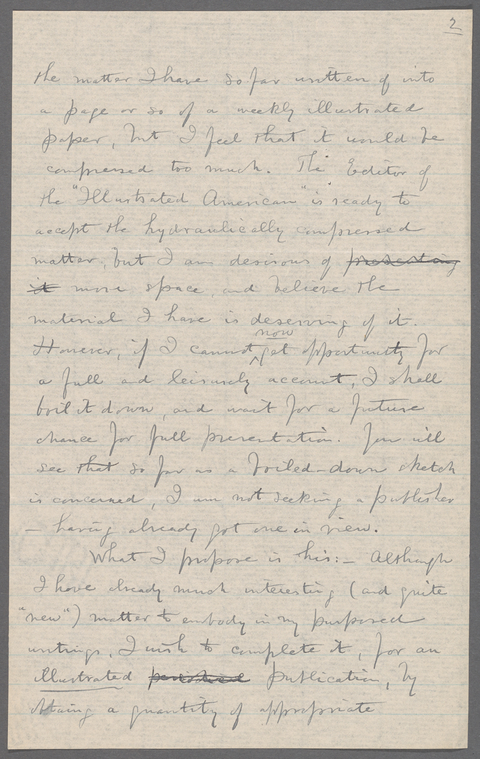 2
the matter I have so far written of into
a page or so of a weekly illustrated
paper, but I feel that it would be
compressed too much. The Editor of
the "Illustrated American" is ready to
accept the hydraulically compressed
matter, but I am desirous of presenting
it more space and believe the
material I have is deserving of it.
now
However, if I cannot get opportunity for
a full and leisurely account, I shall
boil it down, and wait for a future
chance for full presentation. You will
see that so far as a boiled-down sketch
is concerned, I am not seeking a publisher
- having already got one in view.
What I propose is this:- Although
I have already much interesting (and quite
"new") matter to embody in my purposed
writings, I wish to complete it, for an
illustrated publication, by
a quantity of appropriate